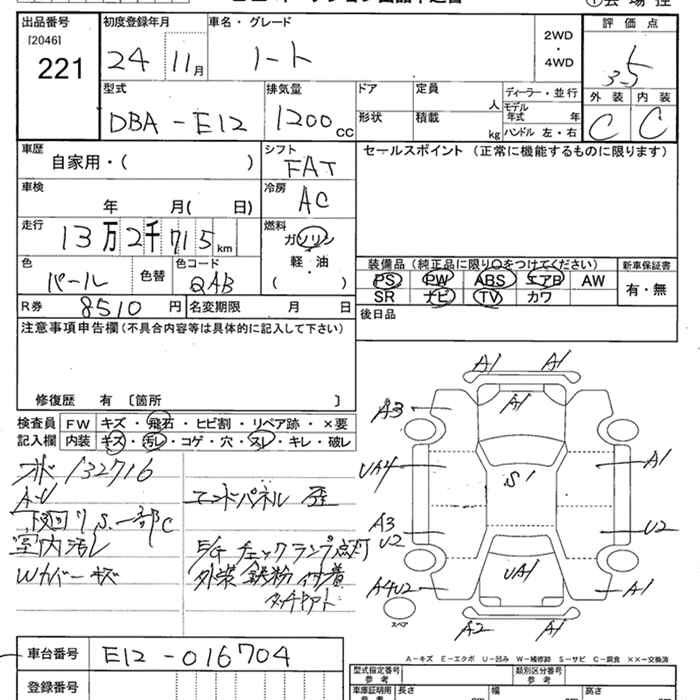 出品番号
[2046]
221
初度登録年月
24 11月
車名・グレード
ノート
2WD
・
4WD
評価点
3.5
外装 内装
C C
型式
DBA - E12
排気量
1200cc
ドア
形状
定員
人
積載
kg
ディーラー・並行
モデル
年式 年
ハンドル 左・右
車歴
自家用・( )
シフト
FAT
セールスポイント (正常に機能するものに限ります)
車検
年 月( 日)
冷房
AC
走行
13万2千715km
燃料
ガソリン
軽・油
( )
色
パール
色替
色コード
QAB
装備品 (純正品に限り○をつけてください)
PS PW ABS エアB AW
SR ナビ TV カワ
新車保証書
有・無
R券 8510円
名変期限 月 日
後日品
注意事項申告欄(不具合内容等は具体的に記入して下さい)
修復歴 有 〔箇所 〕
検査員
記入欄
FW キズ・飛石・ヒビ割・リペア跡・×要
内装 キズ・汚レ・コゲ・穴・スレ・キレ・破レ
132716
A・U
下廻り S. 一部C
室内汚レ
Wカバーキズ
エンドパネル 歪
チェックランプ点灯
外装 鉄粉付着
A1 A1
A3 A1
UA4 S1 A1
A3
U2 U2
A4U2 UA1 A1
A2 A1
スペア
A-キズ E-エクボ U-凹み W-補修跡 S-サビ C-腐食 ××-交換済
車台番号 E12-016704
登録番号
型式指定番号
参考
類別区分番号
参考
車庫証明用
参考
長さ 幅 高さ